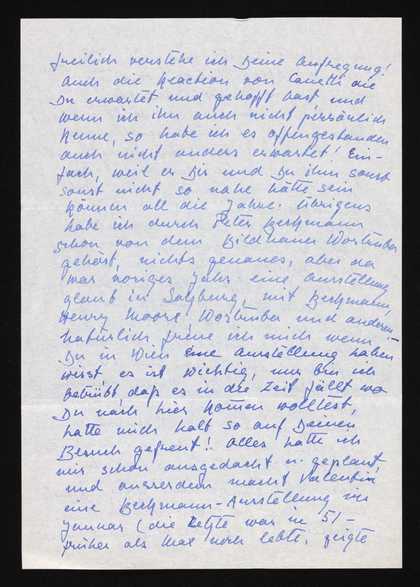 freilich verstehe ich Deine Aufregung!
Auch die Reaction von Canetti die
Du erwartet und gehofft hast und
wenn ich ihn auch nicht persönlich
kenne, so habe ich es offengestanden
auch nicht anders erwartet! Ein-
fach, weil er Dir und Du ihm sonst
sonst nicht so nahe hätte sein
können all die Jahre. Übrigens
habe ich durch Peter Beckmann
schon von dem Bildhauer Wotruba
gehört, nichts genaues, aber da
war voriges Jahr eine Ausstellung
glaub in Salzburg, mit Beckmann,
Henry Moore, Wotruba und anderen –
natürlich freue ich mich wenn
Du in Wien eine Ausstellung haben
wirst es ist wichtig, nur bin ich
betrübt daß es in die Zeit fällt wo
Du nach hier kommen wolltest,
hatte mich halt so auf Deinen
Besuch gefreut! Alles hatte ich
mir schon ausgedacht u. geplant,
und ausserdem macht Valentin
eine Beckmann-Ausstellung im
Januar (die letzte war in 51 –
früher als Max noch lebte, zeigte